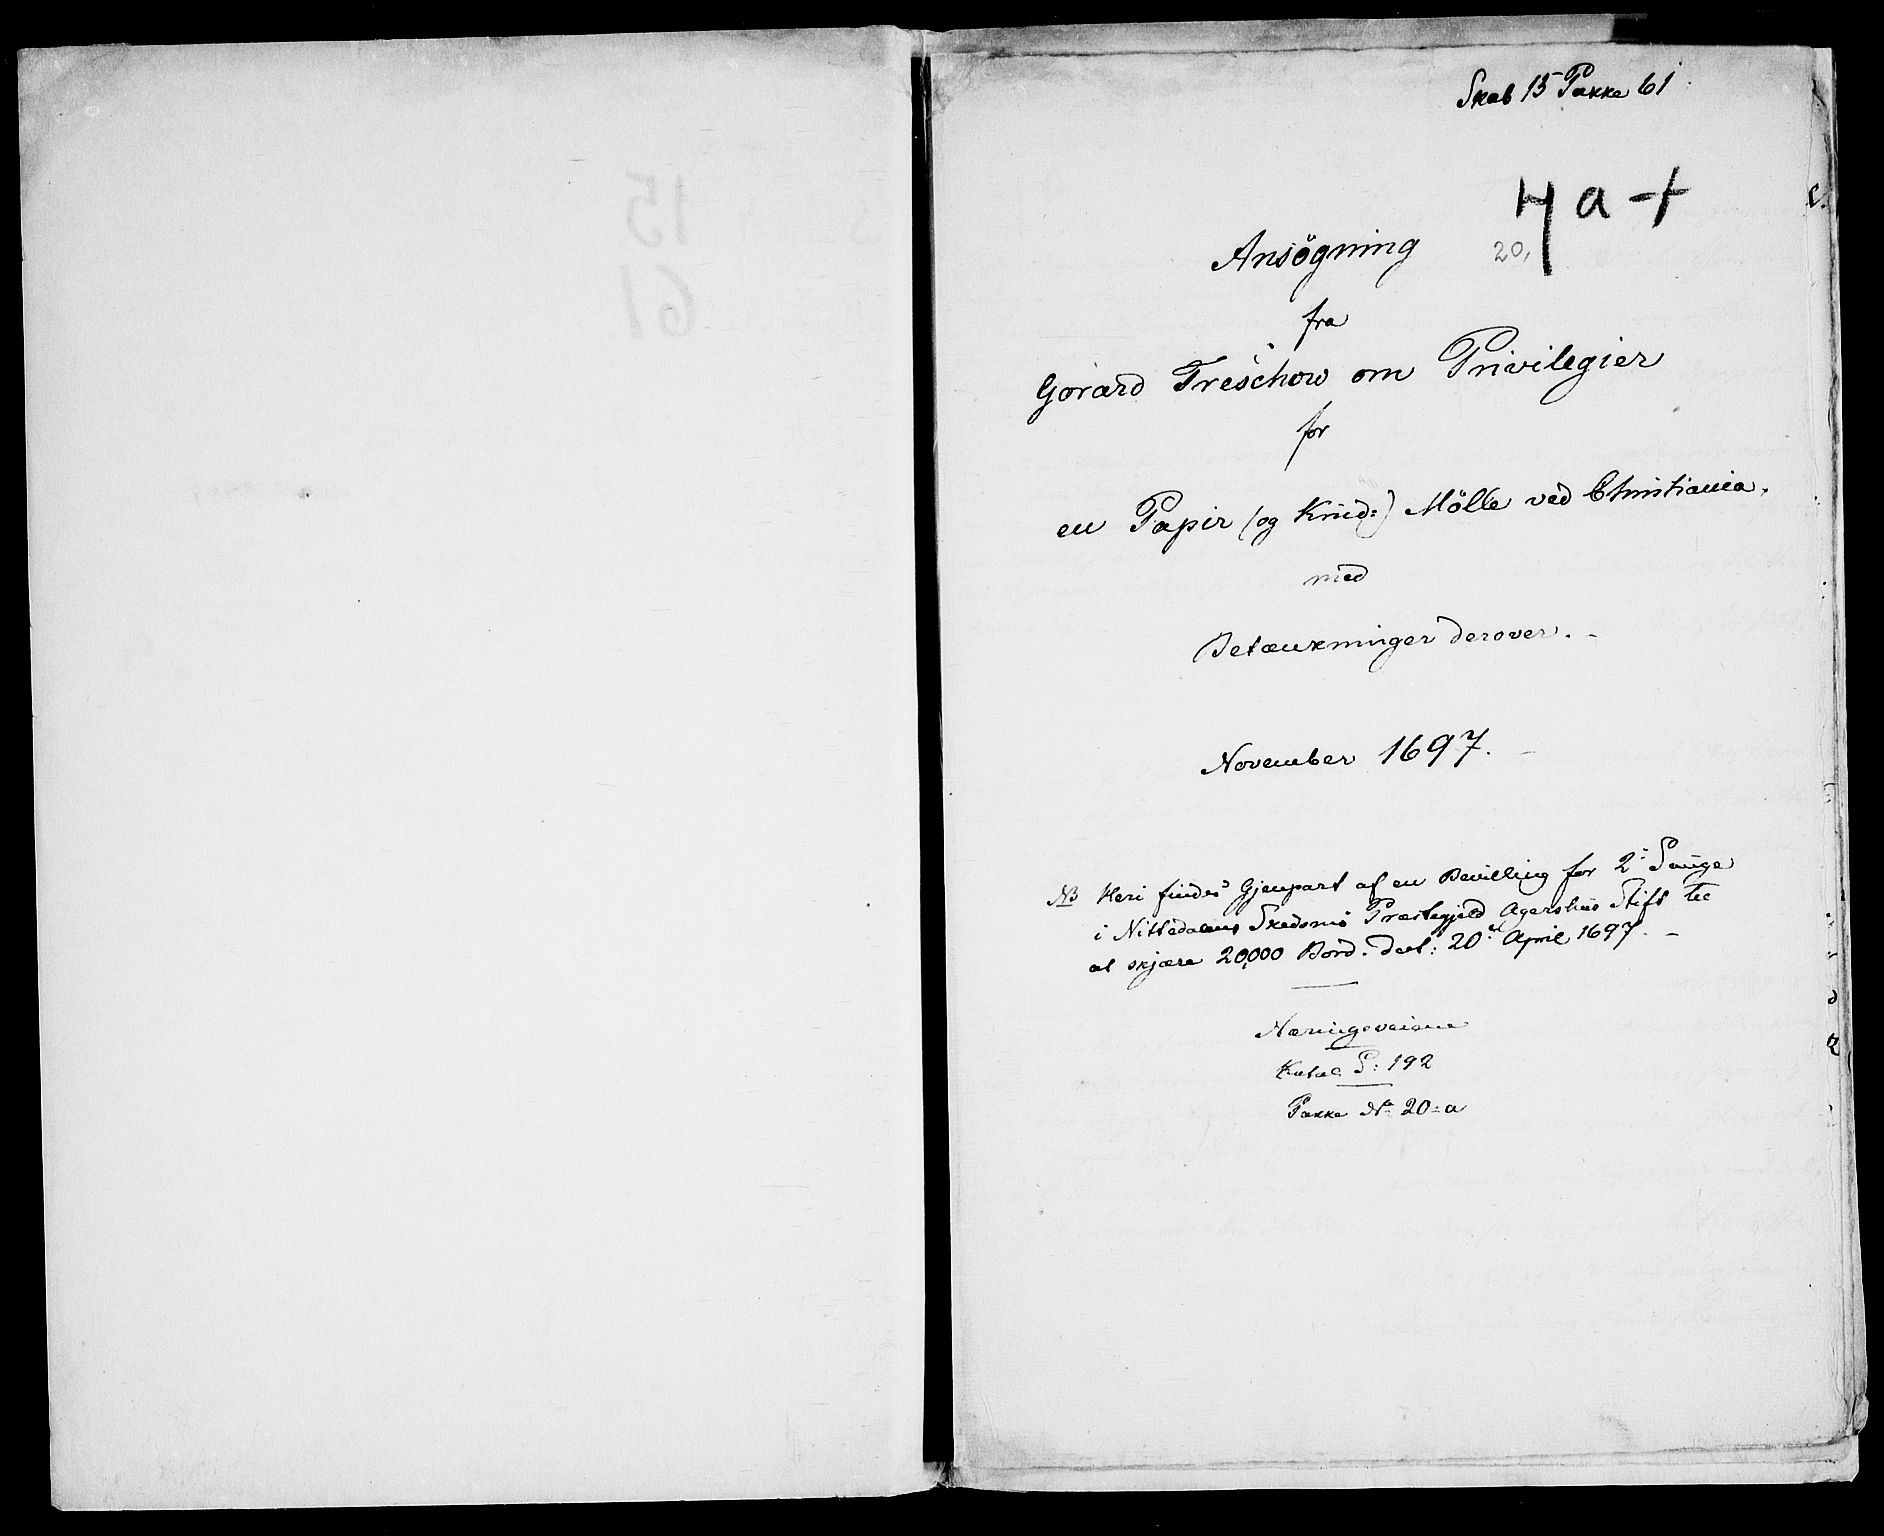 Skab 15 Pakke 61
4 a - f
20,
Ansögning
fra
Gerard Treschow om Privilegier
for
en Papir (og Krud:) Mölle ved Christiania,
med
Betænkninger derover. -
November 1697. -
NB Heri findes Gjenpart af en Bevilling for 2: Sauge
i Nittedalens Skedsmo Præstegjeld Agershus Stift til
at skjære 20,000 Bord. dat: 20de April 1697. -
Næringsveiene
Katal. P: 192
Pakke No 20-a
15
61